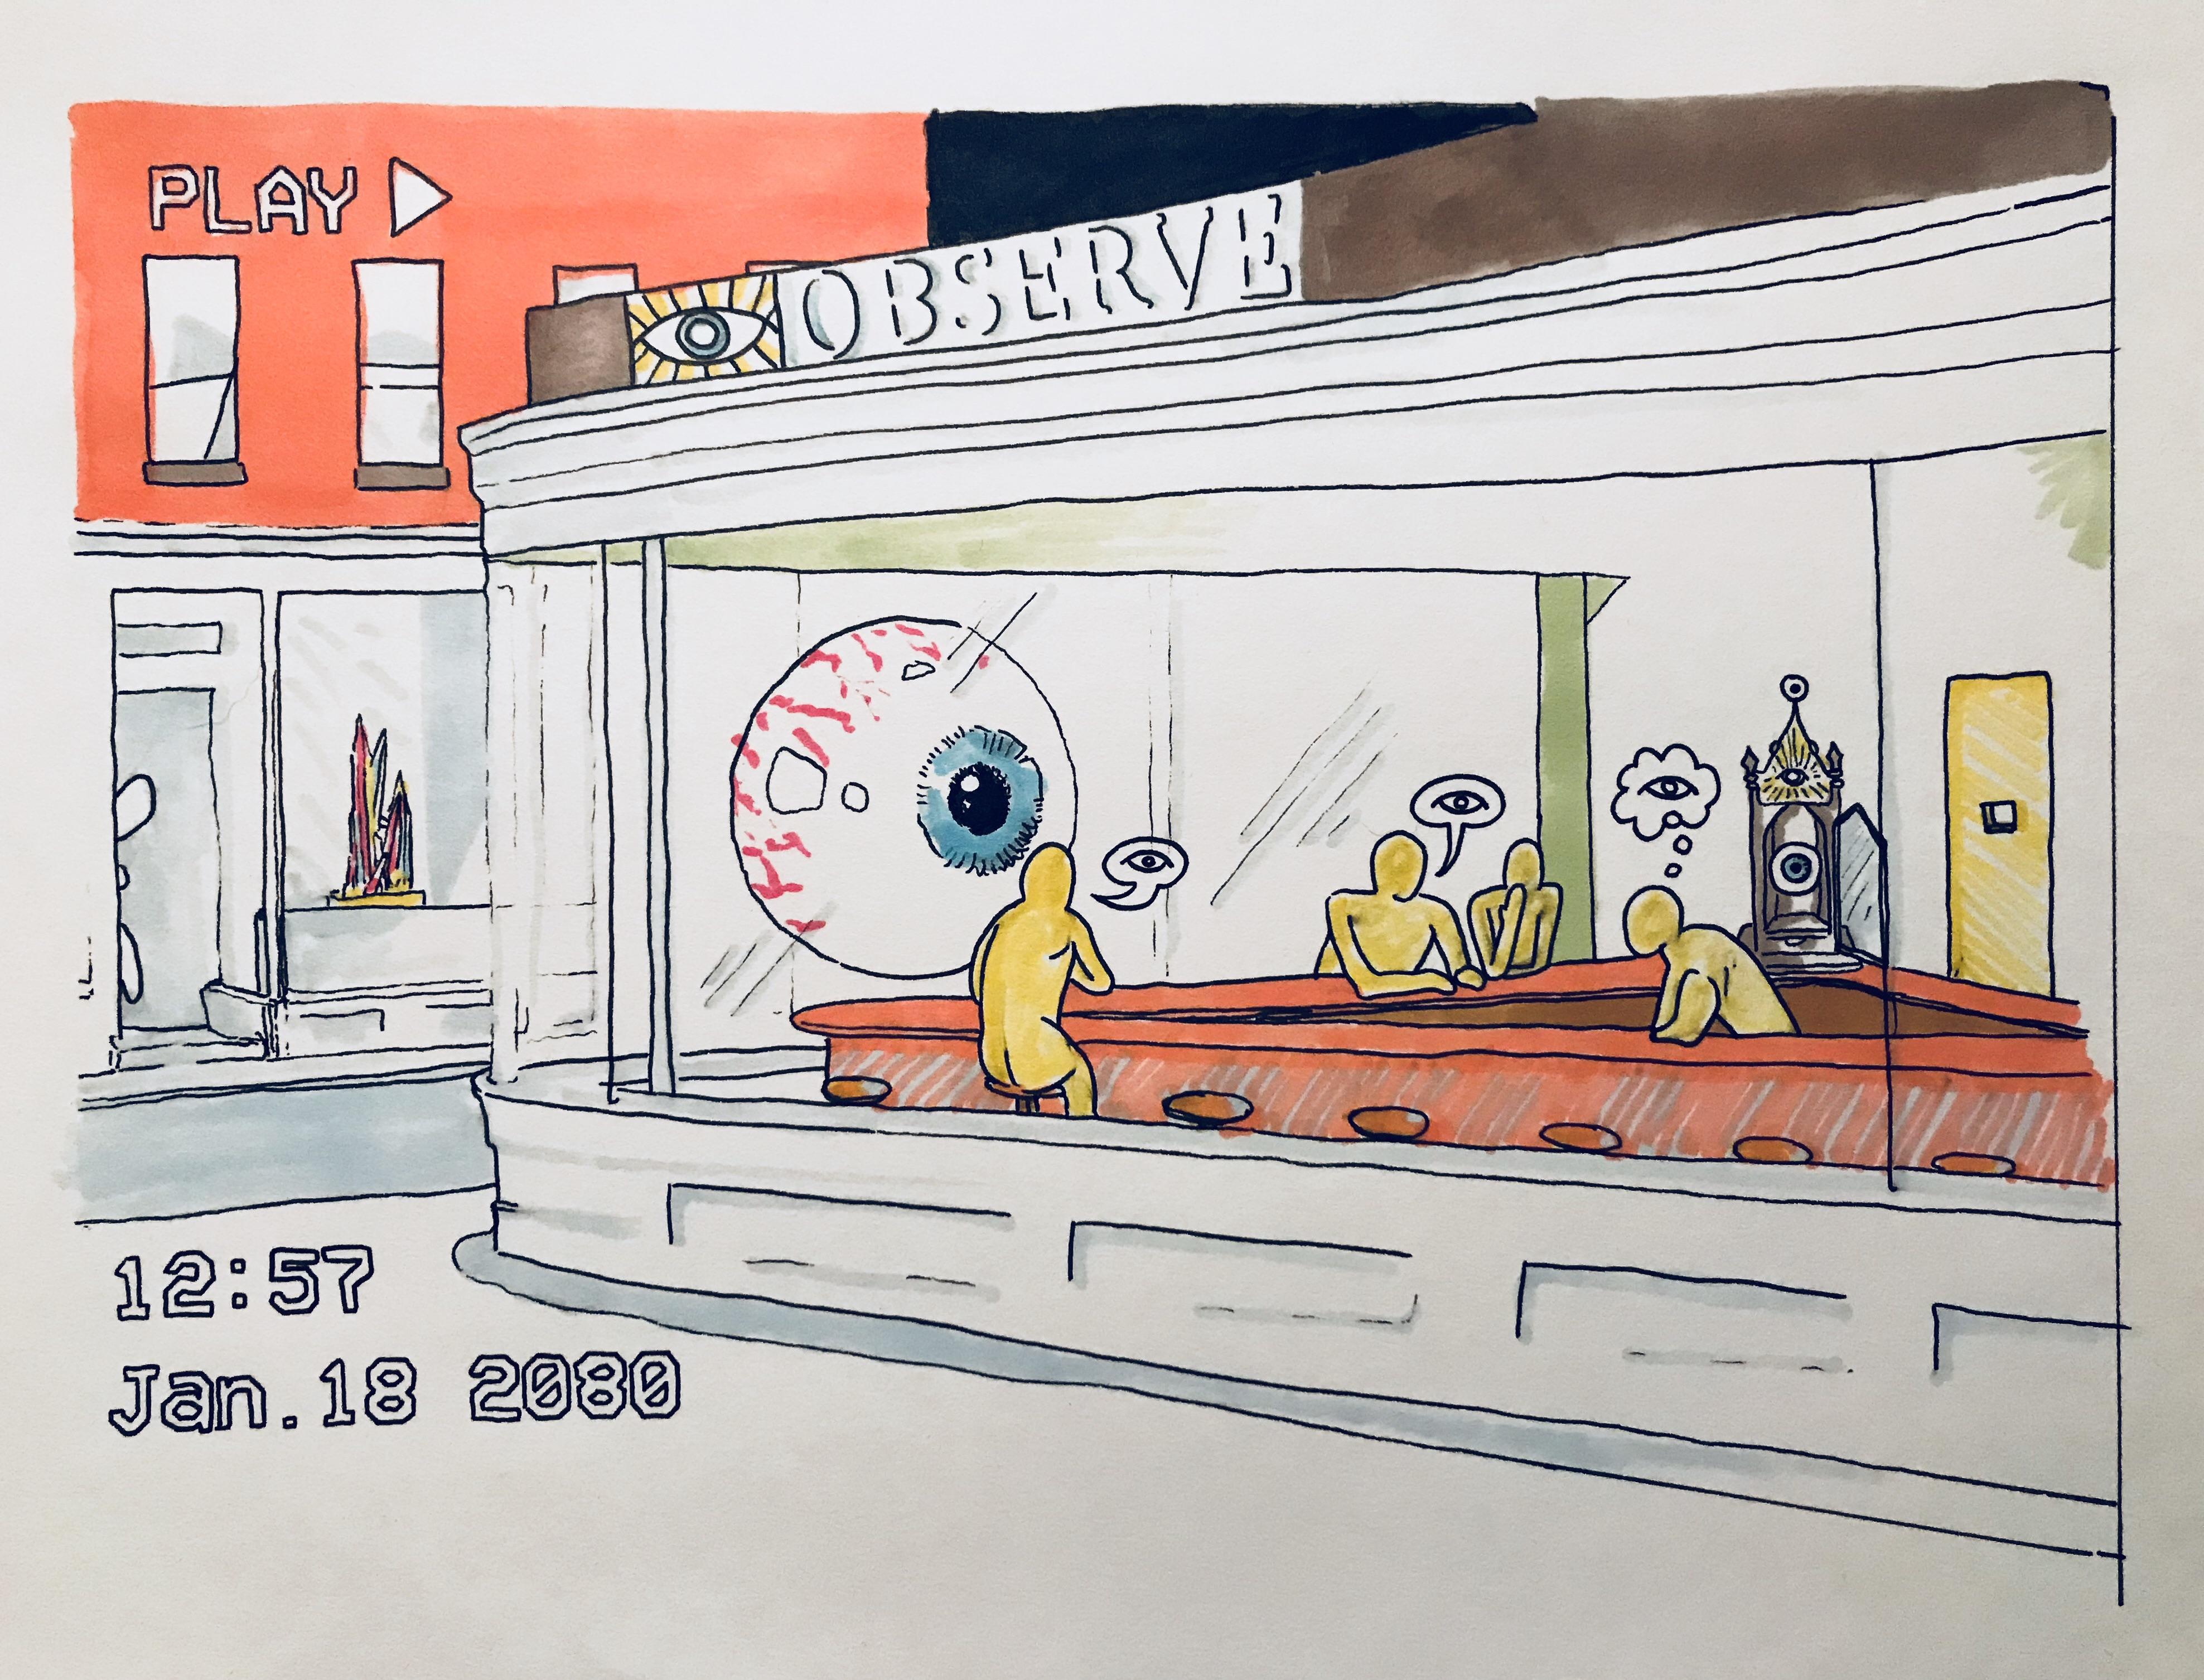 PLAY
OBSERVE
12:57
Jan.18 2080